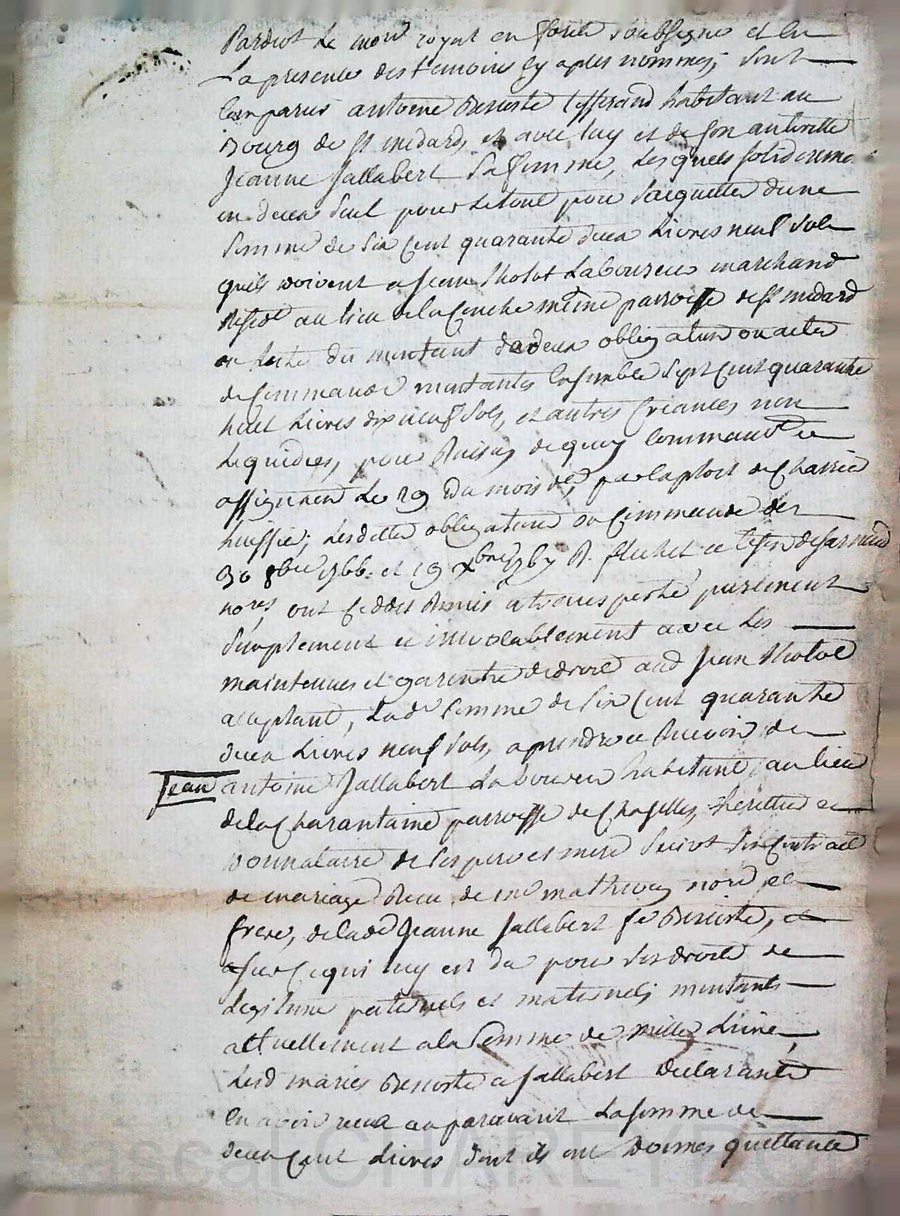 Pardvt Le nore royal en forets soubsigne et en
La presence des temoins cy apres nommes, sont
comparus antoine Benoiste tisserand habitant au
Bourg de st medard, et avec luy et de son autoritte
Jeanne Jallabert Sa femme, Lesquels solidereme
un deux seul pour le tout pour s'acquitter d'une
Somme de six cent quarante deux Livres neuf sols
quils doivent a Jean Tholot Laboureur marchand
au lieu de la Conche même parroisse de st medard
de reste du montant de deux obligations ou actes
de Commande montantes ensemble sept cent quarante
huit Livres dix neuf sols, et autres Creances non
Liquidées, pour Raison de quoy
assignent Le 29 du mois der, par exploit de Charrié
huissier, Lesdittes obligations ou Commande des
30 8bre 1766 et 19 xbre 1767 R.
nores ont Ceddés Remis et transporté purement
Simplement et irrevocablement avec Les
maintenues et garentie de droit aud Jean Tholot
aceptant, Lade Somme de six Cent quarante
deux Livres neuf sols, a prendre et Recevoir de
Jean antoine Jallabert Laboureur habitant au lieu
de la Charantaine parroisse de Chazelles, heritier et
donnataire de ses pere et mere suivt son Contract
de mariage Receu de me mathevon nore, et
frere, de lade Jeanne Jallabert fe Benoiste, et
a sur Ce qui luy est du pour ses droits de
Legitime paternels et maternels montants
actuellement a la Somme de mille Livres,
Lesd mariés Benoiste et Jallabert declarants
en avoir receu auparavant La somme de
deux Cent Livres dont ils ont donnés quittance
Pascal CHAREYRON